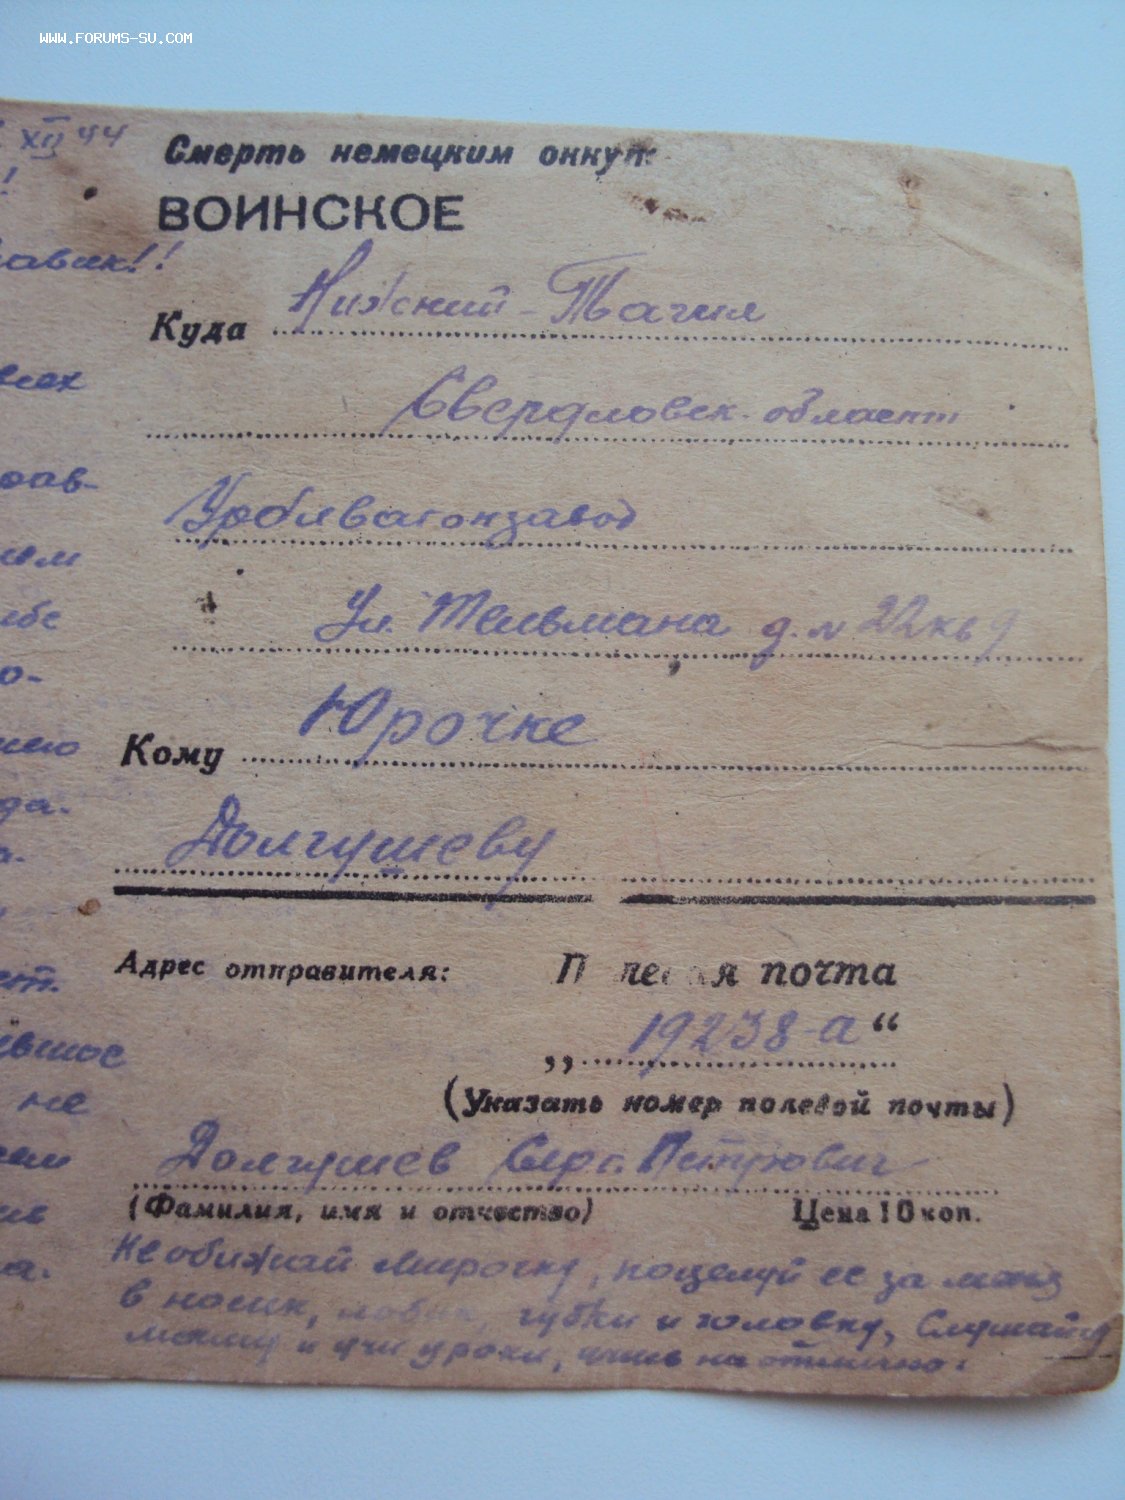 WWW.FORUMS-SU.COM
XII 44
Смерть немецким оккуп
!
ВОИНСКОЕ
авик!!
Куда Нижний-Тагил
всех
Свердловск. область
рав-
Уралвагонзавод
ем
Ул. Тельмана д. № 22 кв 9
ебе
о-
Кому Юрочке
его
да.
Долгушеву
а.
Адрес отправителя: П леая почта
ст.
„ 19238-а “
евшое
(Указать номер полевой почты)
не
Долгушев Серг. Петрович
(Фамилия, имя и отчество) Цена 10 коп.
Не обижай Мирочку, поцелуй ее за меня
а.
в носик, лобик, губки и головку, Слушайся
мамку и учи уроки, учись на отлично.